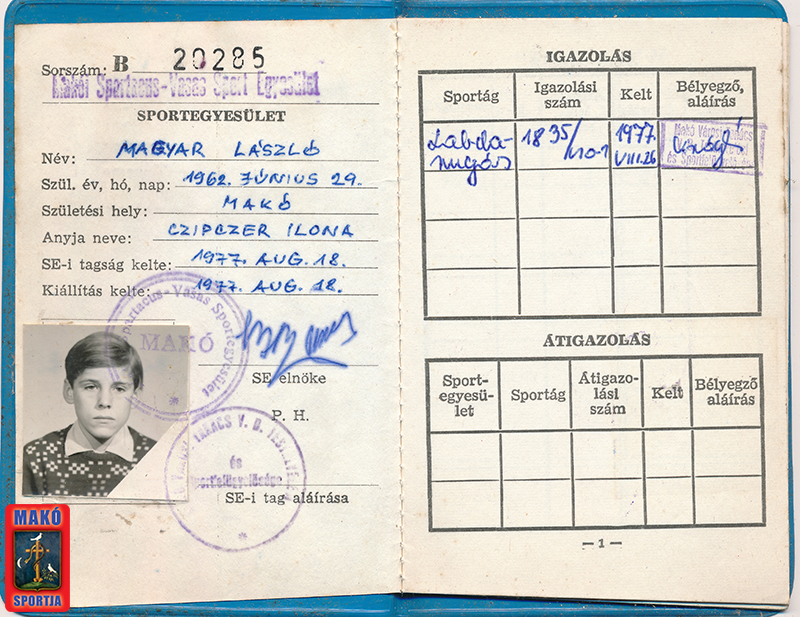 Sorszám: B 20285
Makói Spartacus-Vasas Sport Egyesület
SPORTEGYESÜLET
Név: MAGYAR LÁSZLÓ
Szül. év, hó, nap: 1962. JÚNIUS 29.
Születési hely: MAKÓ
Anyja neve: CZIPCZER ILONA
SE-i tagság kelte: 1977. AUG. 18.
Kiállítás kelte: 1977. AUG. 18.
Spartacus-Vasas Sportegyesület
MAKÓ
SE elnöke
P. H.
és
Sportfelügyelősége
SE-i tag aláírása
MAKÓ
SPORTJA
IGAZOLÁS
Sportág Igazolási szám Kelt Bélyegző, aláírás
Labda-
rúgás
1835/
1977.
VIII.26
Makó Városi
és Sportfelügyelősége
ÁTIGAZOLÁS
Sport-
egyesü-
let
Sportág
Átigazo-
lási
szám
Kelt
Bélyegző
aláírás
— 1 —